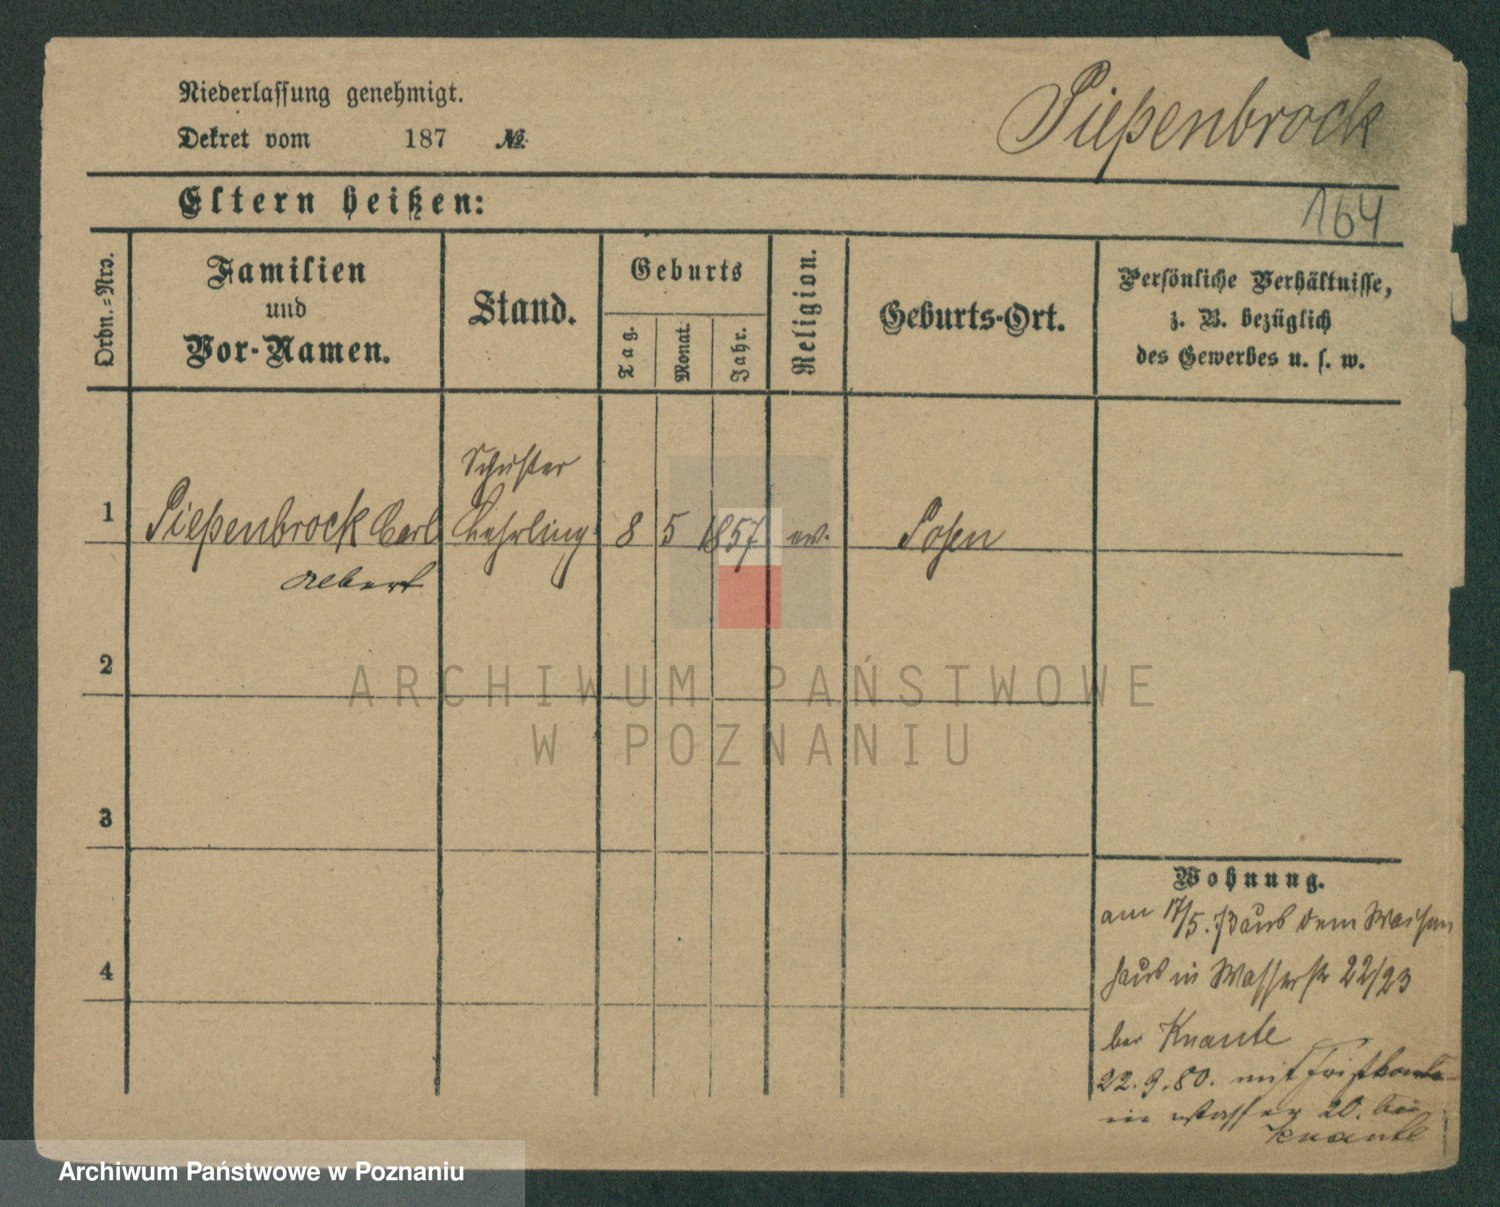 Niederlassung genehmigt.
Dekret vom 187 №
Pießenbrock
164
Eltern heißen:
Ordn.=Nro.
Familien
und
Vor-Namen.
Stand.
Geburts
Tag.
Monat.
Jahr.
Religion.
Geburts-Ort.
Persönliche Verhältnisse,
z. B. bezüglich
des Gewerbes u. s. w.
Schuster
1 Pießenbrock Carl Lehrling 8 5 1857 ev. Posen
Albert
2
3
4
Wohnung.
am 17/5. 73 aus dem Waisen
haus in Wasserstr 22/23
bei Knaute
22.9.80. mit
in Wasser 20. bei
Knaute
ARCHIWUM PAŃSTWOWE
W POZNANIU
Archiwum Państwowe w Poznaniu